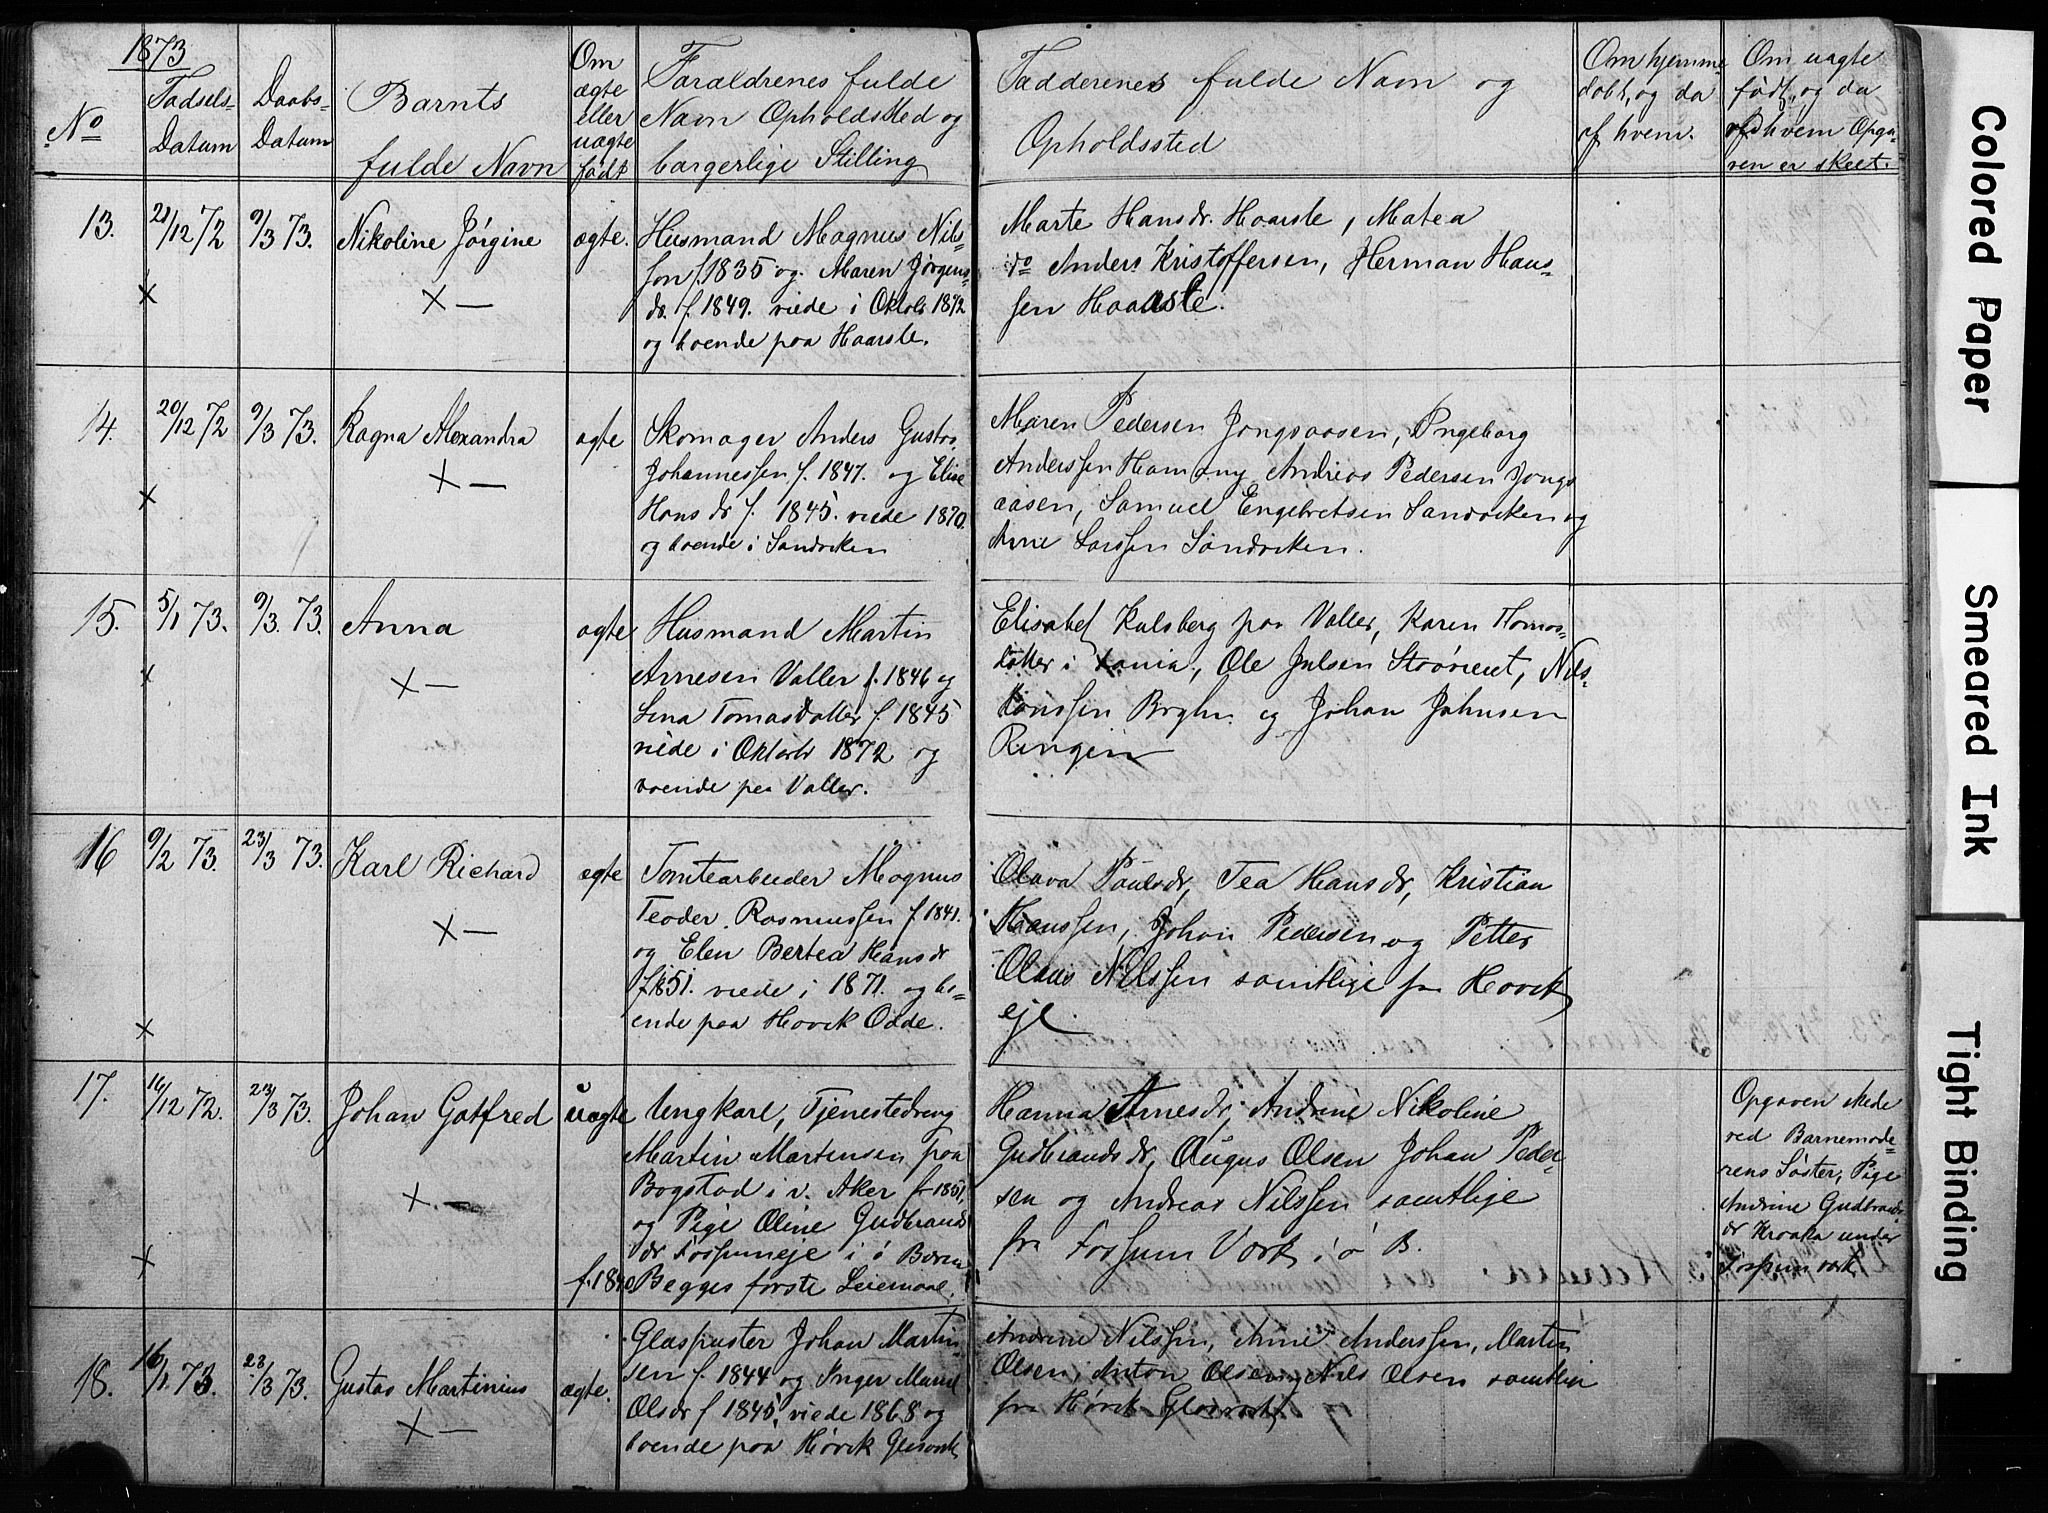 1873
No
Fødsels-
Datum
Daabs-
Datum
Barnts
fulde Navn
Om
ægte
eller
uægte
født
Foraldrenes fulde
Navn Opholdssted og
borgerlige Stilling
Fadderenes fulde Navn og
Opholdssted
Om hjemme
døbt, og da
af hvem.
Om uægte
født, og da
af hvem Opga-
ven er skeet.
13.
21/12 72
9/3 73.
Nikoline Jørgine
ægte.
Husmand Magnus Nils-
sen f. 1835 og Maren Jørgens-
dr. f. 1849. viede i Oktob 1872
og boende paa Haarsle.
Marte Hansdr. Haarsle, Matea
do Anders Kristoffersen, Herman Han-
sen Haarsle.
× × —
14.
20/12 72
9/3 73.
Ragna Alexandra
ægte
Skomager Anders Gustav
Johannessen f. 1847. og Elise
Hans dr f. 1845. viede 1870.
og boende i Sandviken
Maren Pedersen Jongsaasen, Ingeborg
Anderssen Hamang Andreas Pedersen Jongs
aasen, Samuel Engebretsen Sandviken og
Anne Larssen Sandviken.
× × —
15.
5/1 73.
9/3. 73.
Anna
ægte
Husmand Martin
Arnesen Valler f. 1846 og
Lina Tomasdatter f. 1845
viede i Oktobr 1872 og
boende paa Valler.
Elisabet Kulsberg paa Valler, Karen Thomas-
datter i Lania, Ole Julsen Strømeut, Nils-
Hanssen Brghn. og Johan Johnsen
Ringin
× × —
16
9/2 73.
23/3 73.
Karl Richard
ægte
Tomtearbeider Magnus
Teodor Rasmussen f. 1841.
og Elen Bertea Hans dr
f. 1851. viede i 1871. og bo-
ende paa Høvik Odde.
Olava Paulsdr, Tea Hans dr, Kristian
Hanssen, Johan Pedersen og Petter
Olaus Nilssen samtlige fra Høvik
eje.
× × —
17.
16/12 72.
23/3 73.
Johan Gotfred
uægte
Ungkarl, Tjenestedreng
Martin Martinsen paa
Bogstad i v. Aker f. 1851,
og Pige Oline Gudbrands
dr Fossumeje i ø Bærum
f. 1840 Begges første Leiermaal.
Hanna Arnesdr, Andrine Nikoline
Gudbrands dr, Augus Olsen Johan Peder-
sen og Andreas Nilssen samtlige
fra Fossum Værk i ø B.
Opgaven skede
ved Barnemode-
rens Søster, Pige
Andrine Gudbrands
dr Kroaka under
Fossum værk
× × —
18.
16/1 73
23/3 73.
Gustav Martinius
ægte.
Glaspuster Johan Martin-
sen f. 1844 og Inger Marie
Olsdr f 1845, viede 1868 og
boende paa Høvik Glasværk
Andrine Nilssen, Anne Anderssen, Martin
Olsen, Anton Olsen og Nils Olsen samtlige
fra Høvik Glasværk
× —
Colored Paper
Smeared Ink
Tight Binding